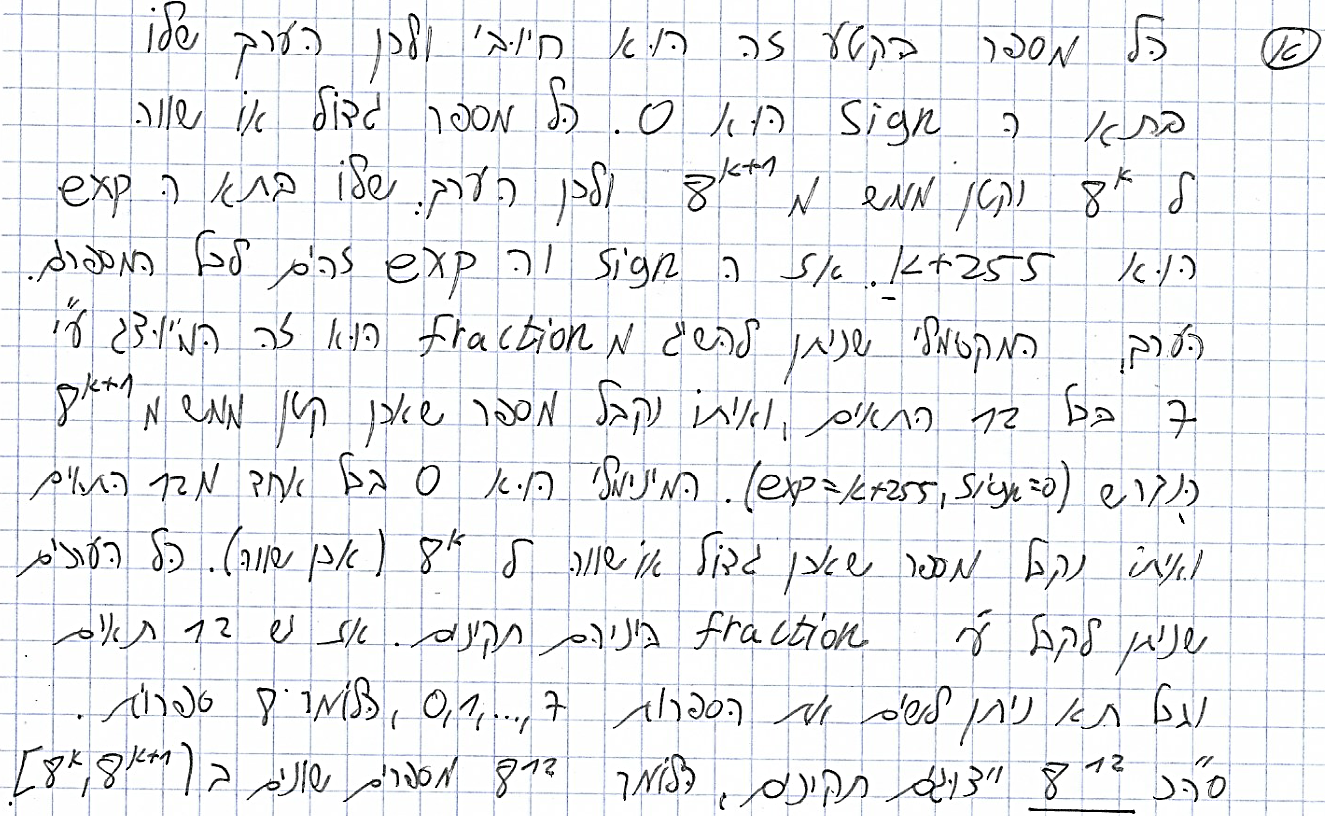 (א) כל מספר בקטע זה הוא חיובי ולכן הערך שלו
בתא ה sign הוא 0. כל מספר גדול או שווה
ל 8^k וקטן ממש מ 8^{k+1} ולכן הערך שלו בתא ה exp
הוא k+255. אז ה sign וה exp זהים לכל המספרים.
הערך המקסמלי שניתן להשיג מ fraction הוא זה המיוצג ע"י
7 בכל 12 התאים, ואיתו נקבל מספר שאכן קטן ממש מ 8^{k+1}
כנדרש (exp=k+255, sign=0). המינימלי הוא 0 בכל אחד מ 12 התאים
ואיתו נקבל מספר שאכן גדול או שווה ל 8^k (אכן שווה). כל הערכים
שניתן לקבל ע"י fraction ביניהם תקינים. אז יש 12 תאים
ובכל תא ניתן לשים את הספרות 0,1,...,7, כלומר 8 ספרות.
סה"כ 8^{12} ייצוגים תקינים, כלומר 8^{12} מספרים שונים ב [8^k, 8^{k+1})